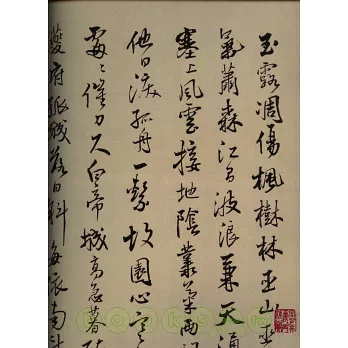 玉露凋傷楓樹林巫山巫
氣蕭森江間波浪兼天涌
塞上風雲接地陰叢菊兩
他日淚孤舟一繫故園心寒
處處催刀尺白帝城高急暮砧
夔府孤城落日斜每依南斗